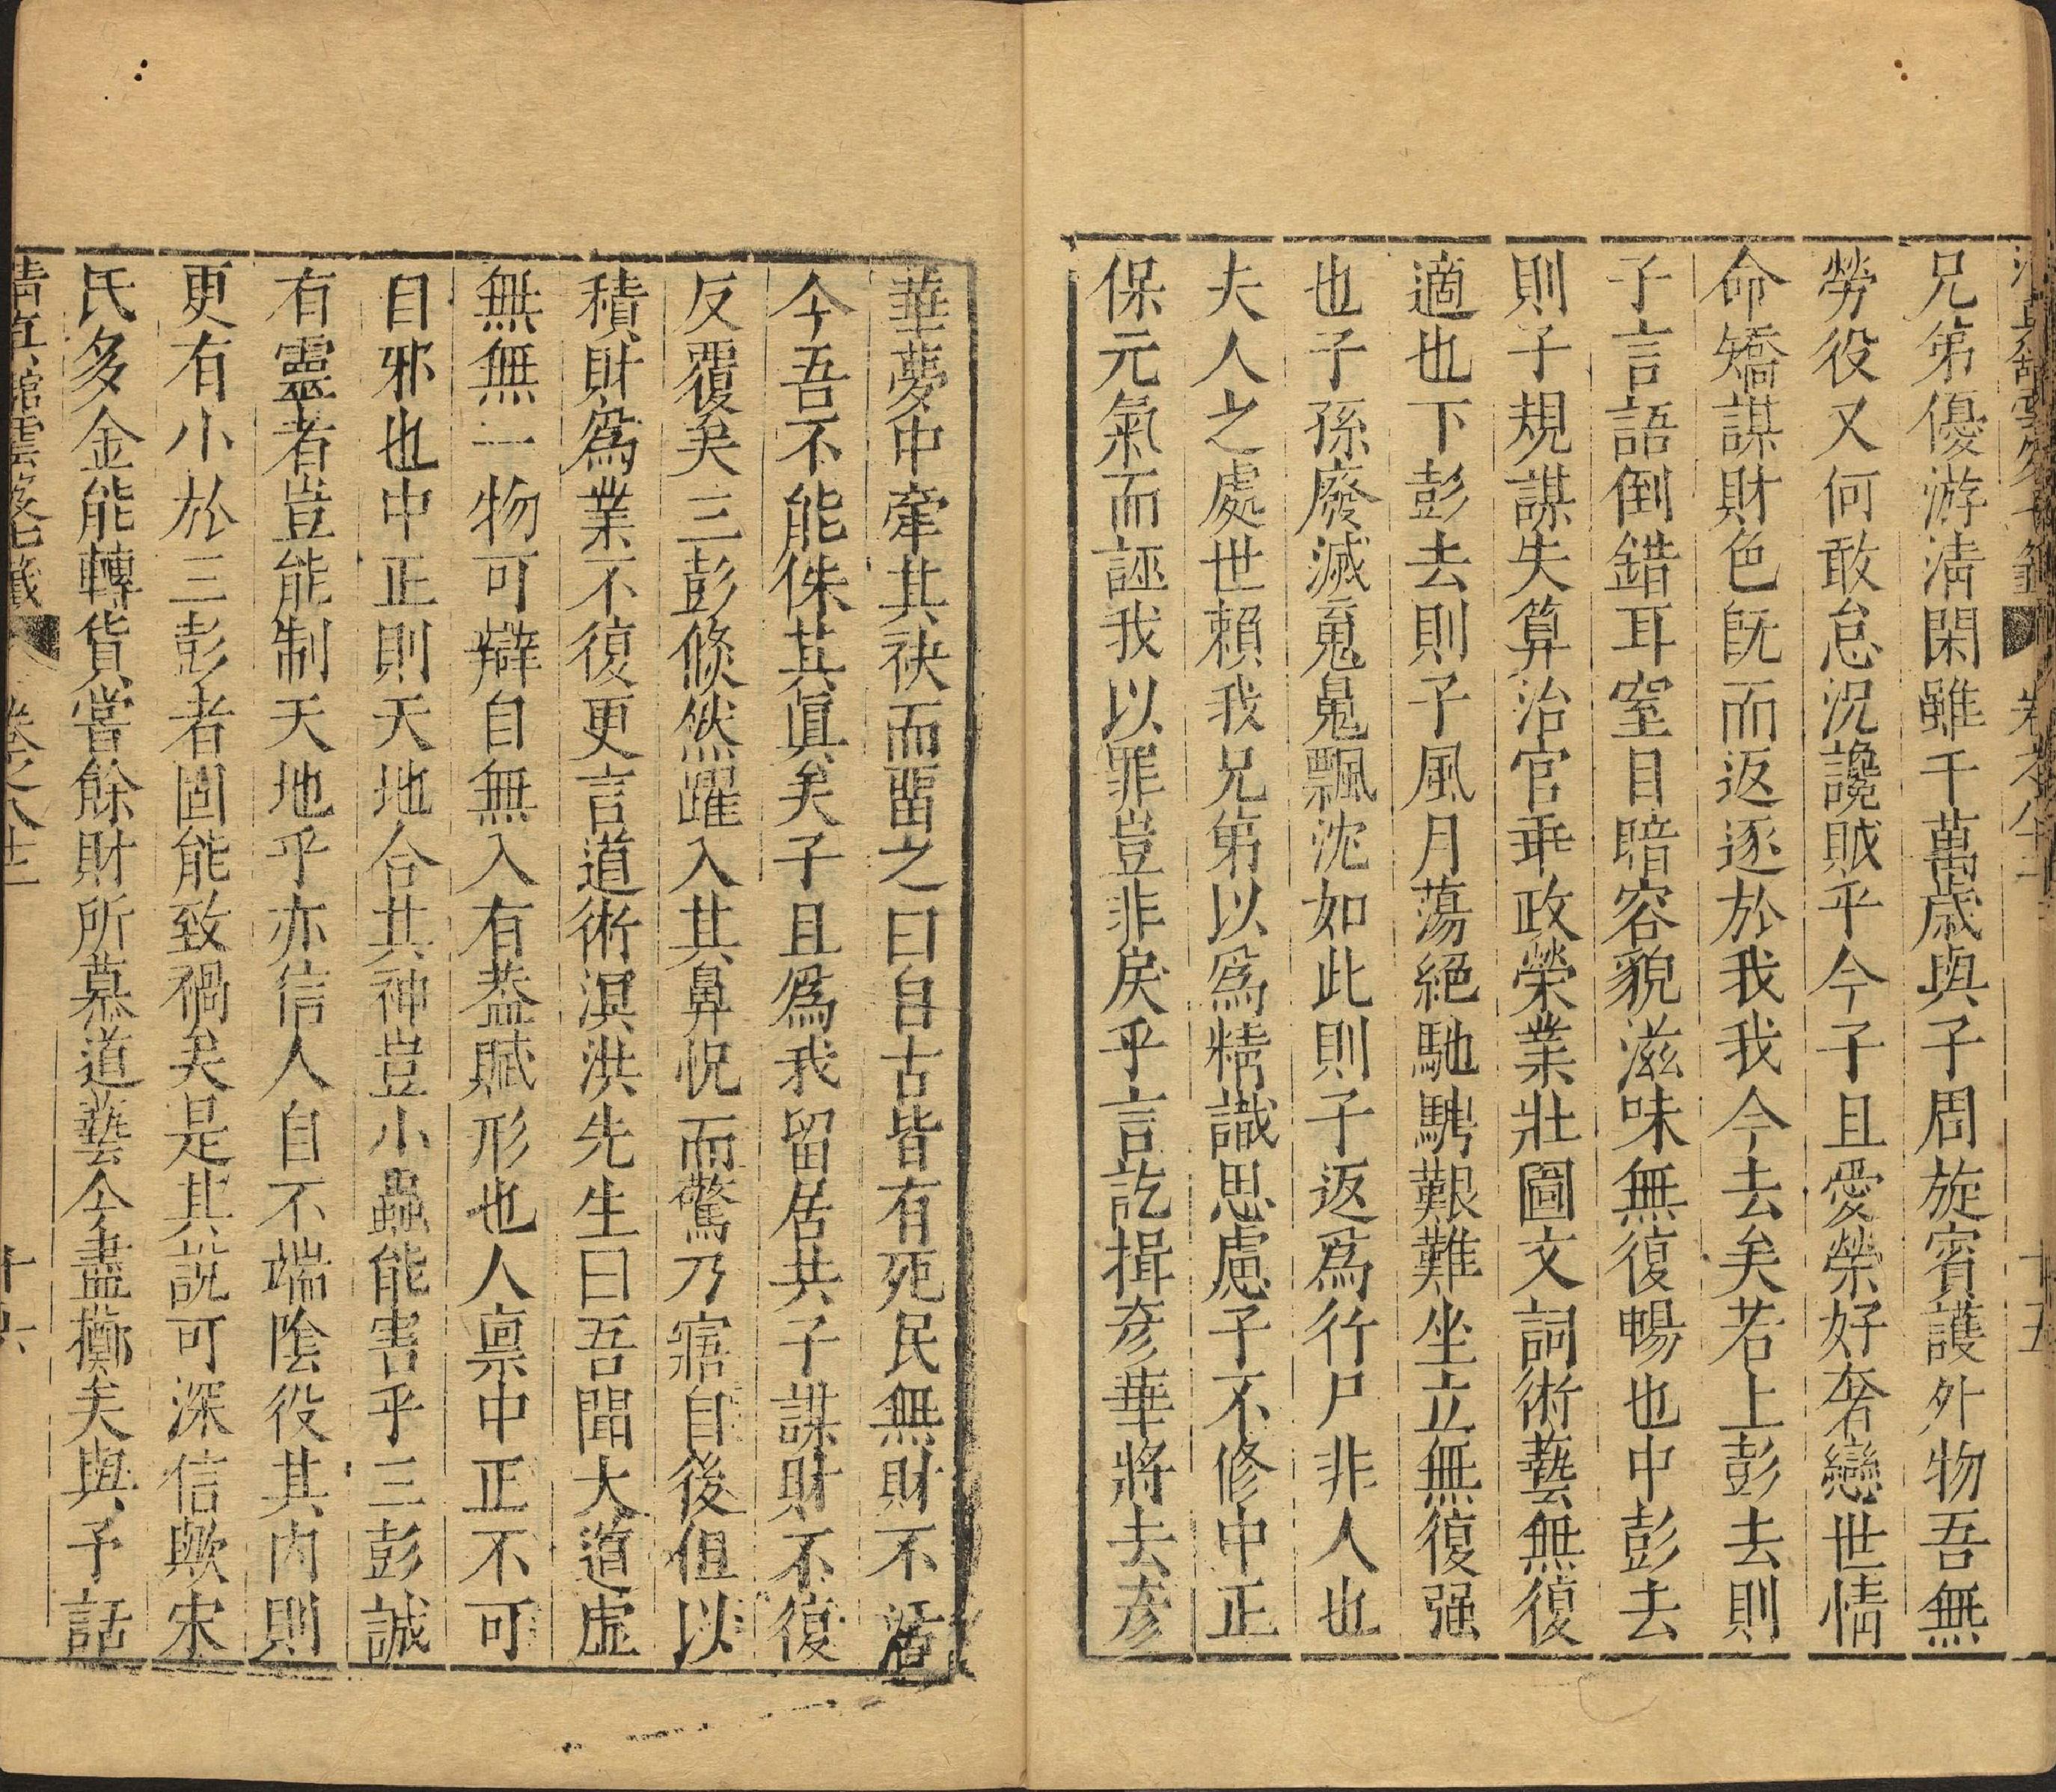 兄弟優游清閑雖千萬歲與子周旋賓護外物吾無
勞役又何敢怠況讒賊乎今子且愛榮好奢戀世情
命矯謀財色旣而返逐於我我今去矣若上彭去則
子言語倒錯耳窒目暗容貌滋味無復暢也中彭去
則子規謀失算治官乖政榮業壯圖文詞術藝無復
適也下彭去則子風月蕩絕馳騁艱難坐立無復强
也子孫廢滅䰟鬼飄沈如此則子返爲行尸非人也
夫人之處世賴我兄弟以爲精識思慮子不修中正
保元氣而誣我以罪豈非戾乎言訖揖彥華將去彥
華夢中牽其袂而畱之曰自古皆有死民無財不
今吾不能侏其眞矣子且爲我留居共子謀財不復
反覆矣三彭倏然躍入其鼻怳而驚乃寤自後但以
積財爲業不復更言道術溟洪先生曰吾聞大道虛
無無一物可辯自無入有葢賦形也人禀中正不可
自邪也中正則天地合其神豈小蟲能害乎三彭誠
有靈者豈能制天地乎亦信人自不端陰役其内則
更有小於三彭者固能致禍矣是其說可深信歟宋
氏多金能轉貨嘗餘財所慕道藝今盡擲矣與予話
清真館雲笈七籤 卷之八十二 十六